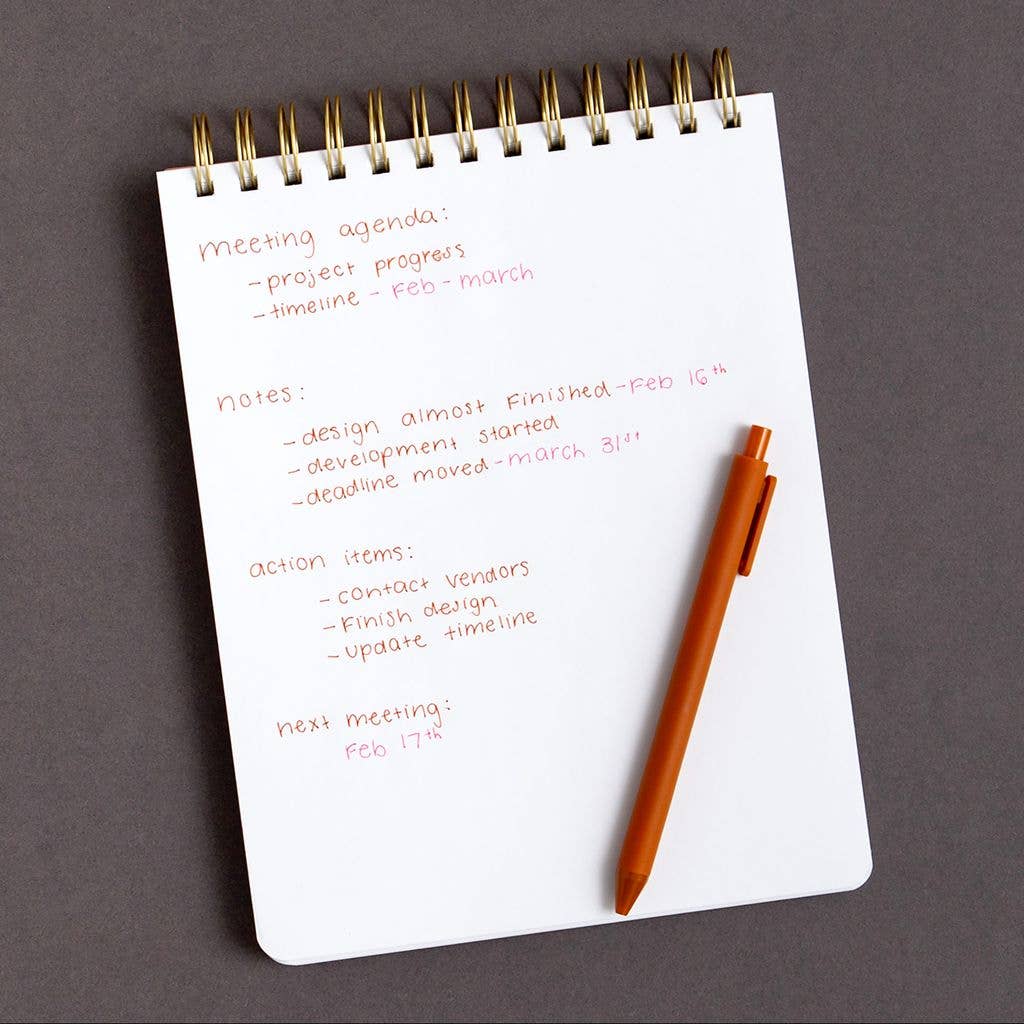 meeting agenda:
- project progress
- timeline - Feb - march
notes:
- design almost Finished - Feb 16th
- development started
- deadline moved - march 31st
action items:
- contact vendors
- Finish design
- update timeline
next meeting:
Feb 17th